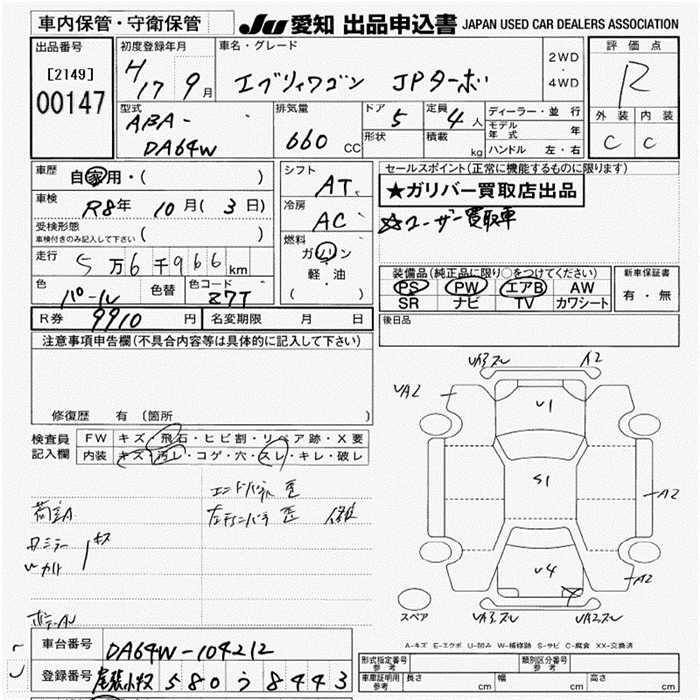 車内保管・守衛保管
JU 愛知 出品申込書 JAPAN USED CAR DEALERS ASSOCIATION
出品番号
[2149]
00147
初度登録年月
H17 9月
車名・グレード
エブリィワゴン JPターボ
2WD
・
4WD
評価点
R
外装 内装
C C
型式
ABA-
DA64W
排気量
660 CC
ドア 5
形状
定員 4人
積載 kg
ディーラー・並行
モデル年式 年
ハンドル 左・右
車歴
自家用・( )
車検
R8年 10月(3日)
受検形態
車検付きのみ記入して下さい ( )
走行
5万6千966km
色
パール
色替
色コード
Z7T
シフト
AT
冷房
AC
燃料
ガソリン
軽・油
( )
セールスポイント(正常に機能するものに限ります)
★ガリバー買取店出品
☆ユーザー買取車
装備品(純正品に限り○をつけてください)
PS PW エアB AW
SR ナビ TV カワシート
新車保証書
有・無
R券 9910円
名変期限 月 日
後日品
注意事項申告欄(不具合内容等は具体的に記入して下さい)
修復歴 有 〔箇所 〕
検査員
記入欄
FW キズ・飛石・ヒビ割・リペア跡・X要
内装 キズ・汚レ・コゲ・穴・スレ・キレ・破レ
エンドパネル歪
UA2
A2
U1
S1
A2
U4
A2
スペア
A-キズ E-エクボ U-凹み W-補修跡 S-サビ C-腐食 XX-交換済
車台番号
DA64W-104212
登録番号
尾張小牧 580 う 8443
形式指定番号
参考
類別区分番号
参考
車庫証明用
参考
長さ cm
幅 cm
高さ cm